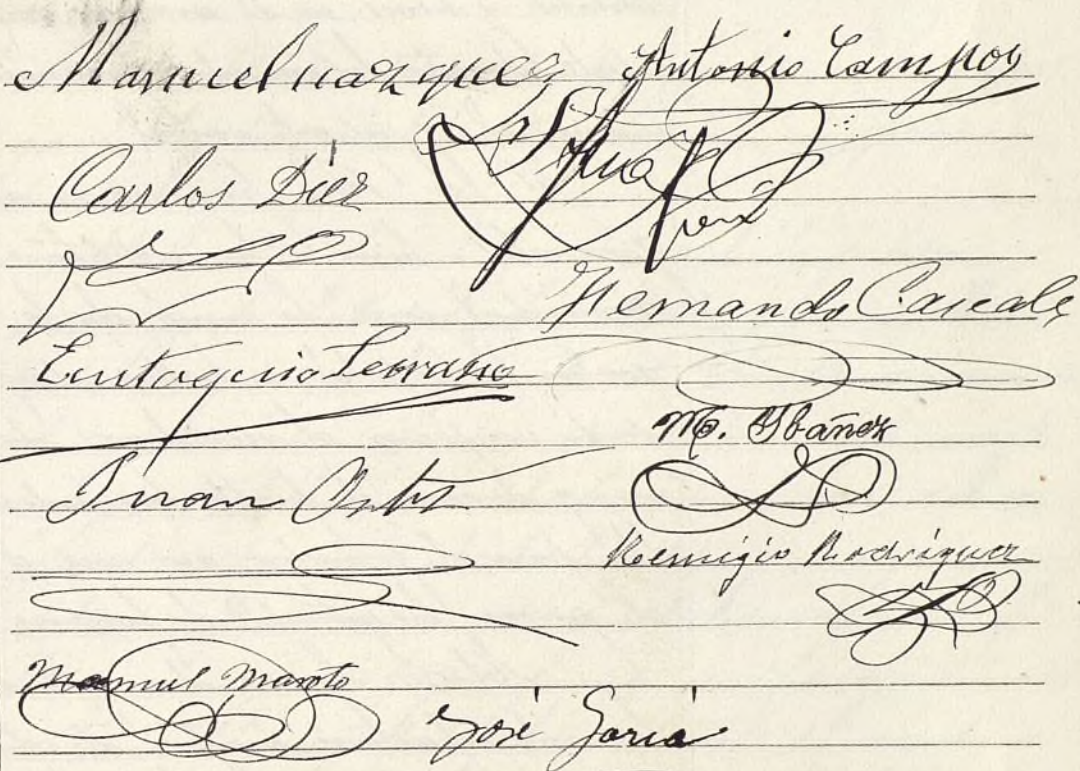 Manuel uazquez Antonio Campoy
Carlos Díez
Hernando Cascales
Eustaquio Serrano
M. Ybáñez
Juan Ortiz
Remigio Rodríguez
Manuel Maroto
José Garia